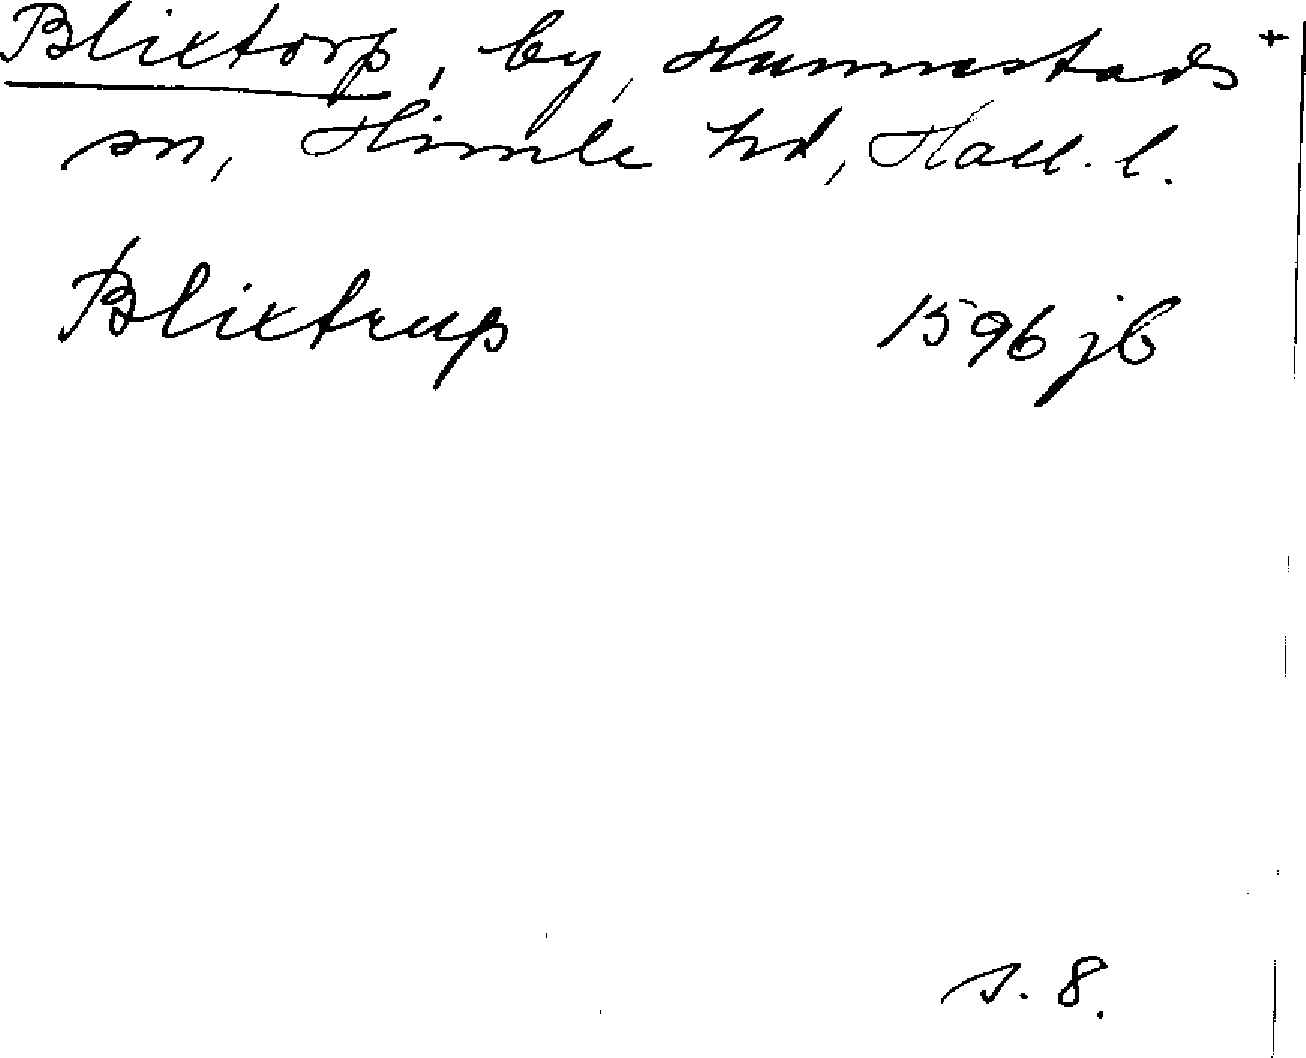 Blixtorp, by, Hunnestads +
sn, Himle hd, Hall. l.
Blixtrup 1596 jb
s. 8.